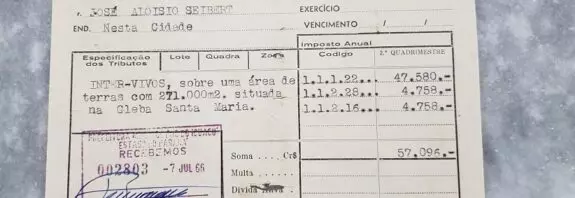 JOSÉ ALOISIO SEIBERT
END. Nesta Cidade
EXERCÍCIO
VENCIMENTO / /
Especificação dos Tributos Lote Quadra Zona
Imposto Anual
Codigo 2.º QUADRIMESTRE
INTER-VIVOS, sobre uma área de 1.1.1.22... 47.580.-
terras com 271.000m2. situada 1.1.2.28... 4.758.-
na Gleba Santa Maria. 1.1.2.16... 4.758.-
PREFEITURA
ESTADO
RECEBEMOS
002803 -7 JUL 66
Soma .... Cr$ 57.096.-
Multa
Divida Ativa